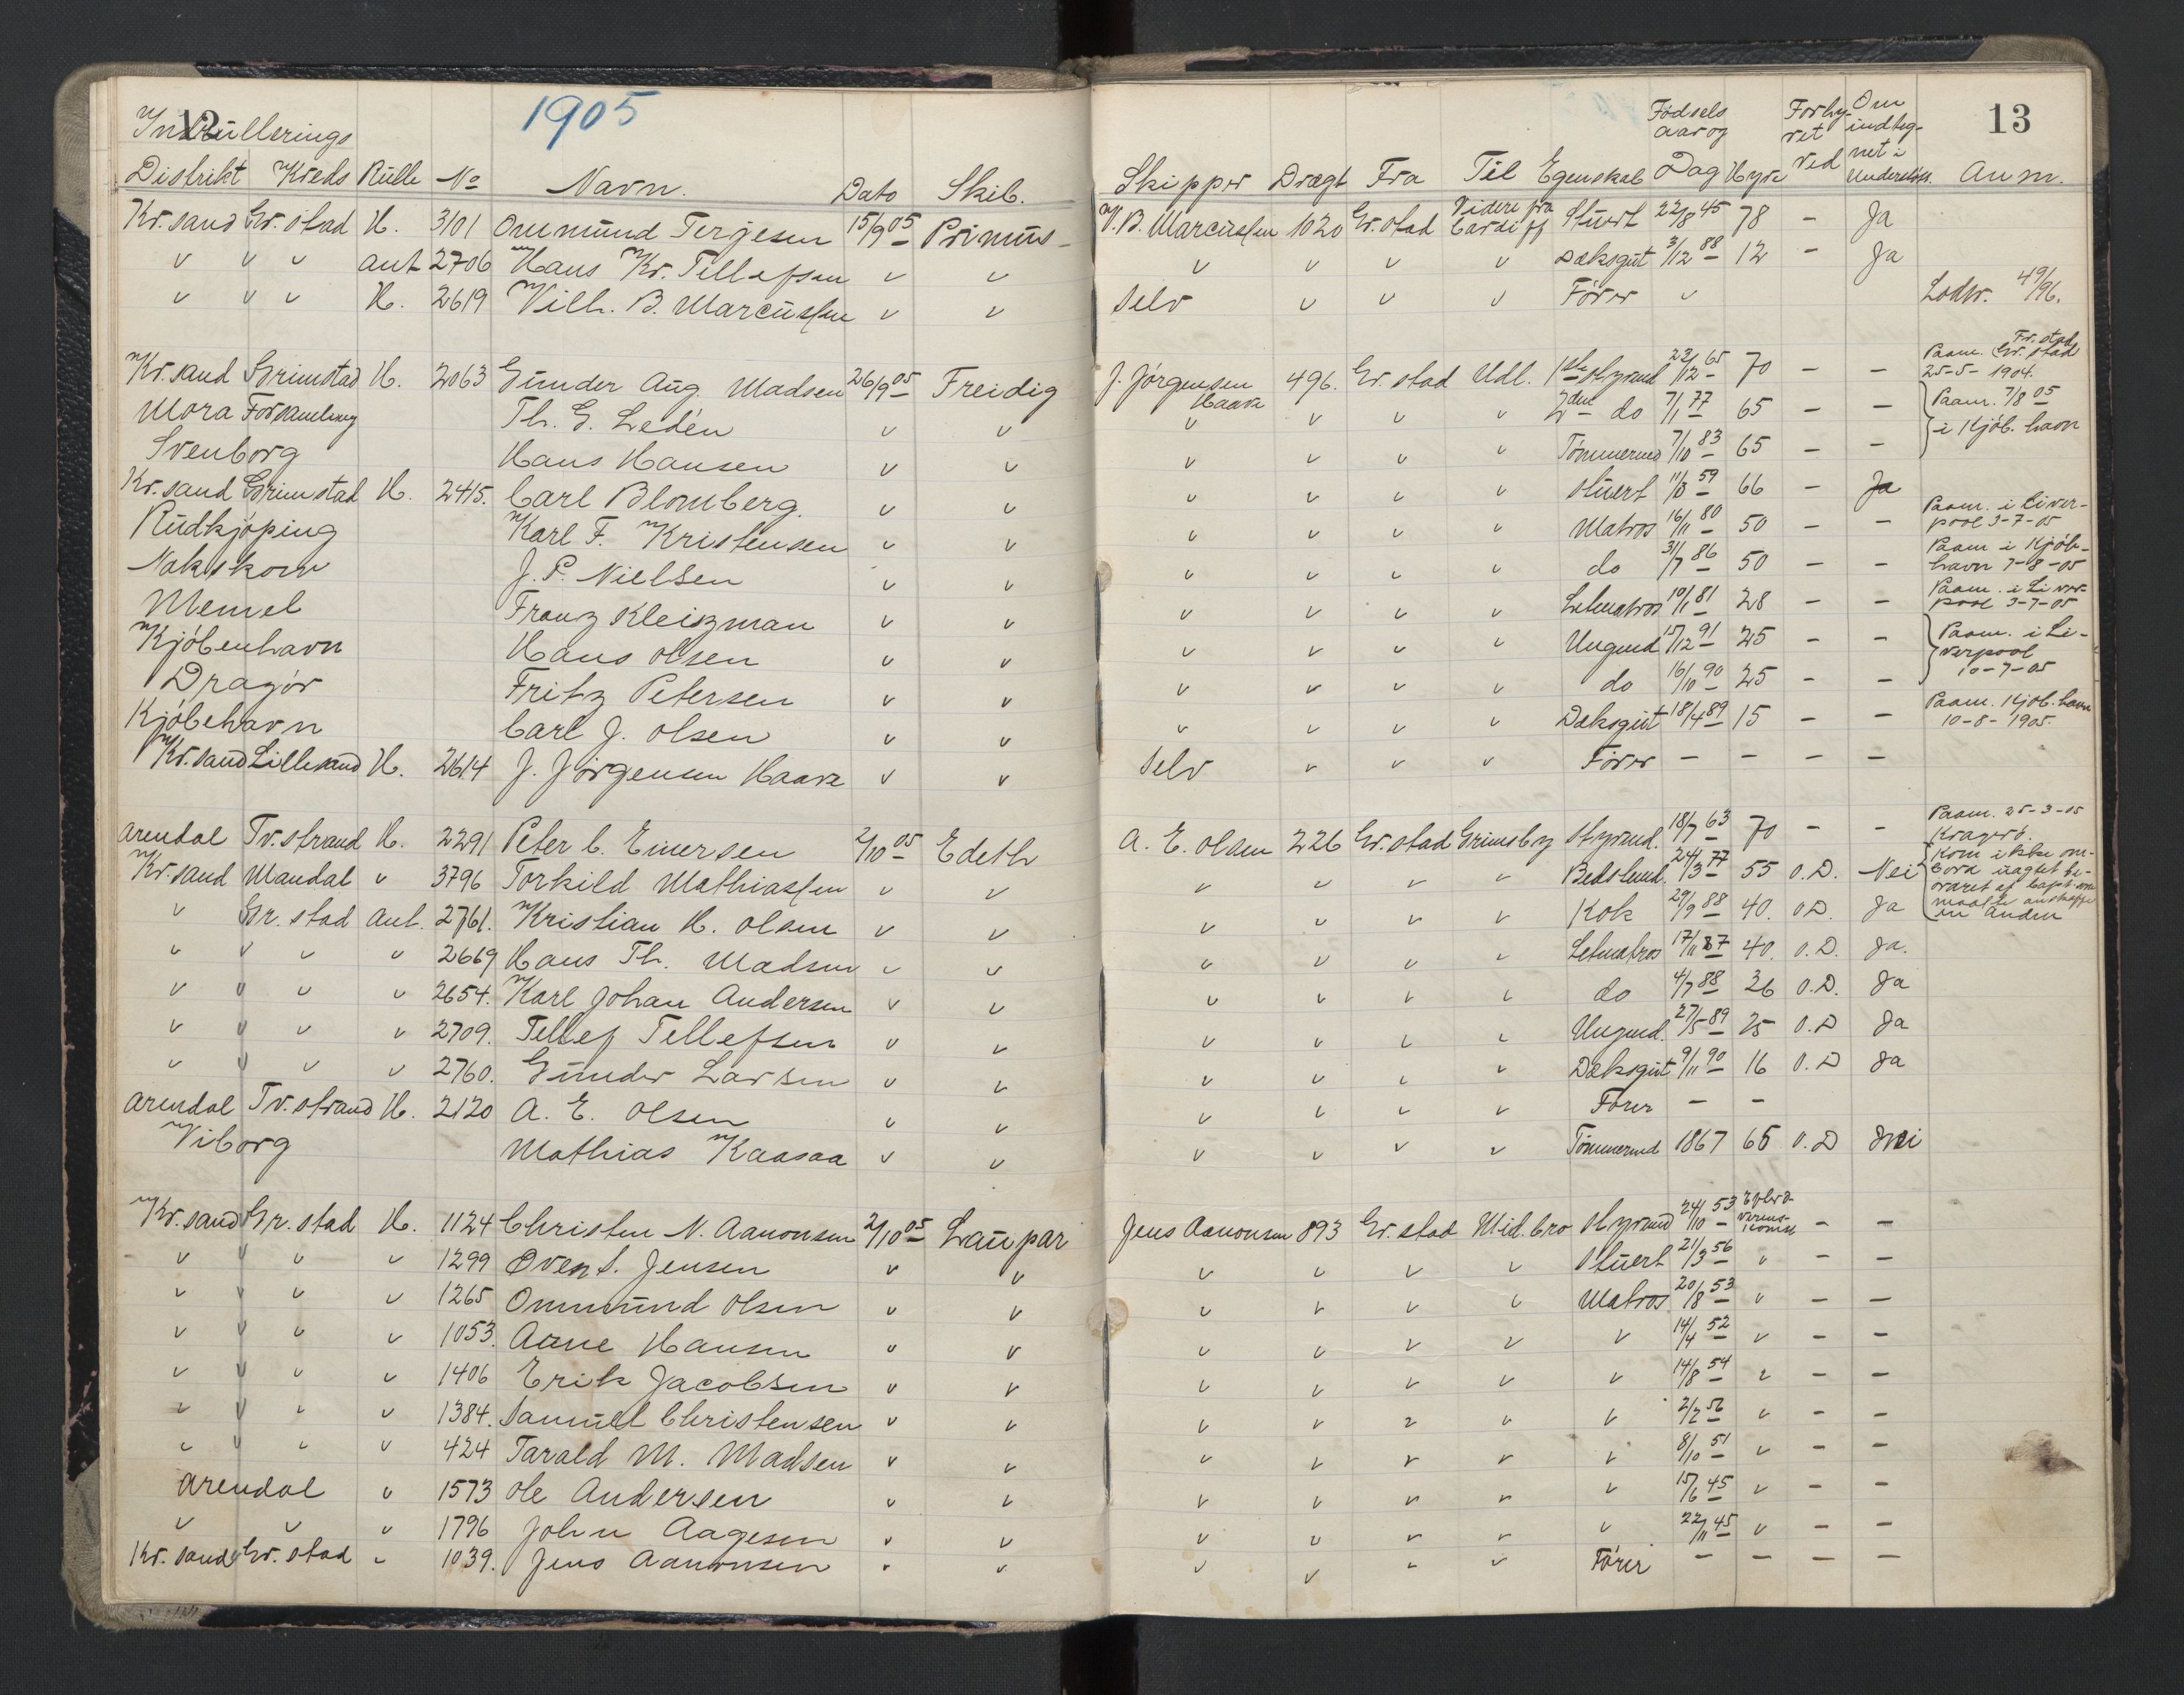 12
1905
Inrullerings
Distrikt Kreds Rulle No Navn. Dato Skib.
Kr.sand Gr.stad H. 3101 Ommund Terjesen 15/9 05 Primus
" " " ant 2706 Hans Kr. Tellefsen " "
" " " H. 2619 Vilh. B. Marcussen " "
Kr.sand Grimstad H. 2063 Gunder Aug. Madsen 26/9 05 Freidig
Mora Forsamling Th. G. Ledén " "
Svenborg Hans Hansen " "
Kr.sand Grimstad H. 2415. Carl Blomberg. " "
Rudkjöping Karl F. Kristensen " "
Nakskov J. P. Nielsen " "
Memel Franz Kleiszman " "
Kjöbenhavn Hans Olsen " "
Dragör Fritz Petersen " "
Kjöbehavn Carl J. Olsen " "
Kr.sand Lillesand H. 2614 J. Jörgensen Haave " "
Arendal Tv.strand H. 2291 Peter C. Einersen 2/10 05 Edeth
Kr.sand Mandal " 3796 Torkild Mathiassen " "
" Gr.stad Ant. 2761. Kristian H. Olsen " "
" " " " 2669 Hans Th. Madsen " "
" " " " 2654. Karl Johan Andersen " "
" " " " 2709. Tellef Tellefsen " "
" " " " 2760. Gunder Larsen " "
Arendal Tv.strand H. 2120 A. E. Olsen " "
Viborg Mathias Kaasaa " "
Kr.sand Gr.stad H. 1124 Christen N. Aanonsen 2/10 05 Laupar
" " " " 1299 Oven S. Jensen " "
" " " " 1265 Ommund Olsen " "
" " " " 1053. Aane Hansen " "
" " " " 1406 Erik Jacobsen " "
" " " " 1384. Samuel Christensen " "
" " " " 424 Tarald M. Madsen " "
Arendal " 1573 Ole Andersen " "
" " " 1796 John Aagesen " "
Kr.sand Gr.stad " 1039. Jens Aanonsen " "
13
Födsels Forhy- Om
aar og ret indteg-
Skipper Drægt Fra Til Egenskab Dag Hyre ved net i Anm.
V. B. Marcussen 1020 Gr.stad Videre fra Cardiff Stuert 22/8 45 78 - Ja
" " " " Dæksgut 3/12 88 12 - Ja
Selv " " " Förer " Lodw. 49/96.
J. Jörgensen Haave 496. Gr.stad Udl. 1ste Styrmd 22/12 65 70 - - Paam. Gr.stad Fr.stad 25-5-1904.
" " " " 2den do 7/1 77 65 - - Paam. 7/8 05
" " " " Tömmermd 7/10 83 65 - - i Kjöb.havn
" " " " Stuert 11/8 59 66 - Ja
" " " " Matros 16/11 80 50 - - Paam. i Liverpool 3-7-05
" " " " do 31/7 86 50 - - Paam i Kjöbhavn 7-8-05
" " " " Letmatros 10/1 81 28 - - Paam. i Liverpool 3-7-05
" " " " Ungmd 15/12 91 25 - - Paam. i Liverpool
" " " " do 16/10 90 25 - - 10-7-05
" " " " Dæksgut 18/4 89 15 - - Paam. Kjöb.havn 10-8-1905.
Selv " " " Förer - - - -
A. E. Olsen 226 Gr.stad Grimsby Styrmd. 18/7 63 70 - - Paam. 25-3-05 Kragerö.
" " " " Bedstmd. 24/3 77 55 O.D. Nei Kom ikke ombord
" " " " Kok 29/9 88 40. O.D. Ja en anden
" " " " Letmatros 17/11 87 40. O.D. Ja.
" " " " do 4/7 88 36 O.D. Ja
" " " " Ungmd. 27/5 89 25 O.D Ja
" " " " Dæksgut 9/11 90 16 O.D Ja
" " " " Förer - -
" " " " Tömmermd 1867 65 O.D Nei
Jens Aanonsen 893 Gr.stad Mid.bro Styrmd 24/10 53 - -
" " " " Stuert 21/3 56 " - -
" " " " Matros 20/8 53 " - -
" " " " " 14/4 52 " - -
" " " " " 14/8 54 " - -
" " " " " 2/2 56 " - -
" " " " " 8/10 51 " - -
" " " " " 15/6 45 " - -
" " " " " 22/11 45 " - -
" " " " Förer - - - -